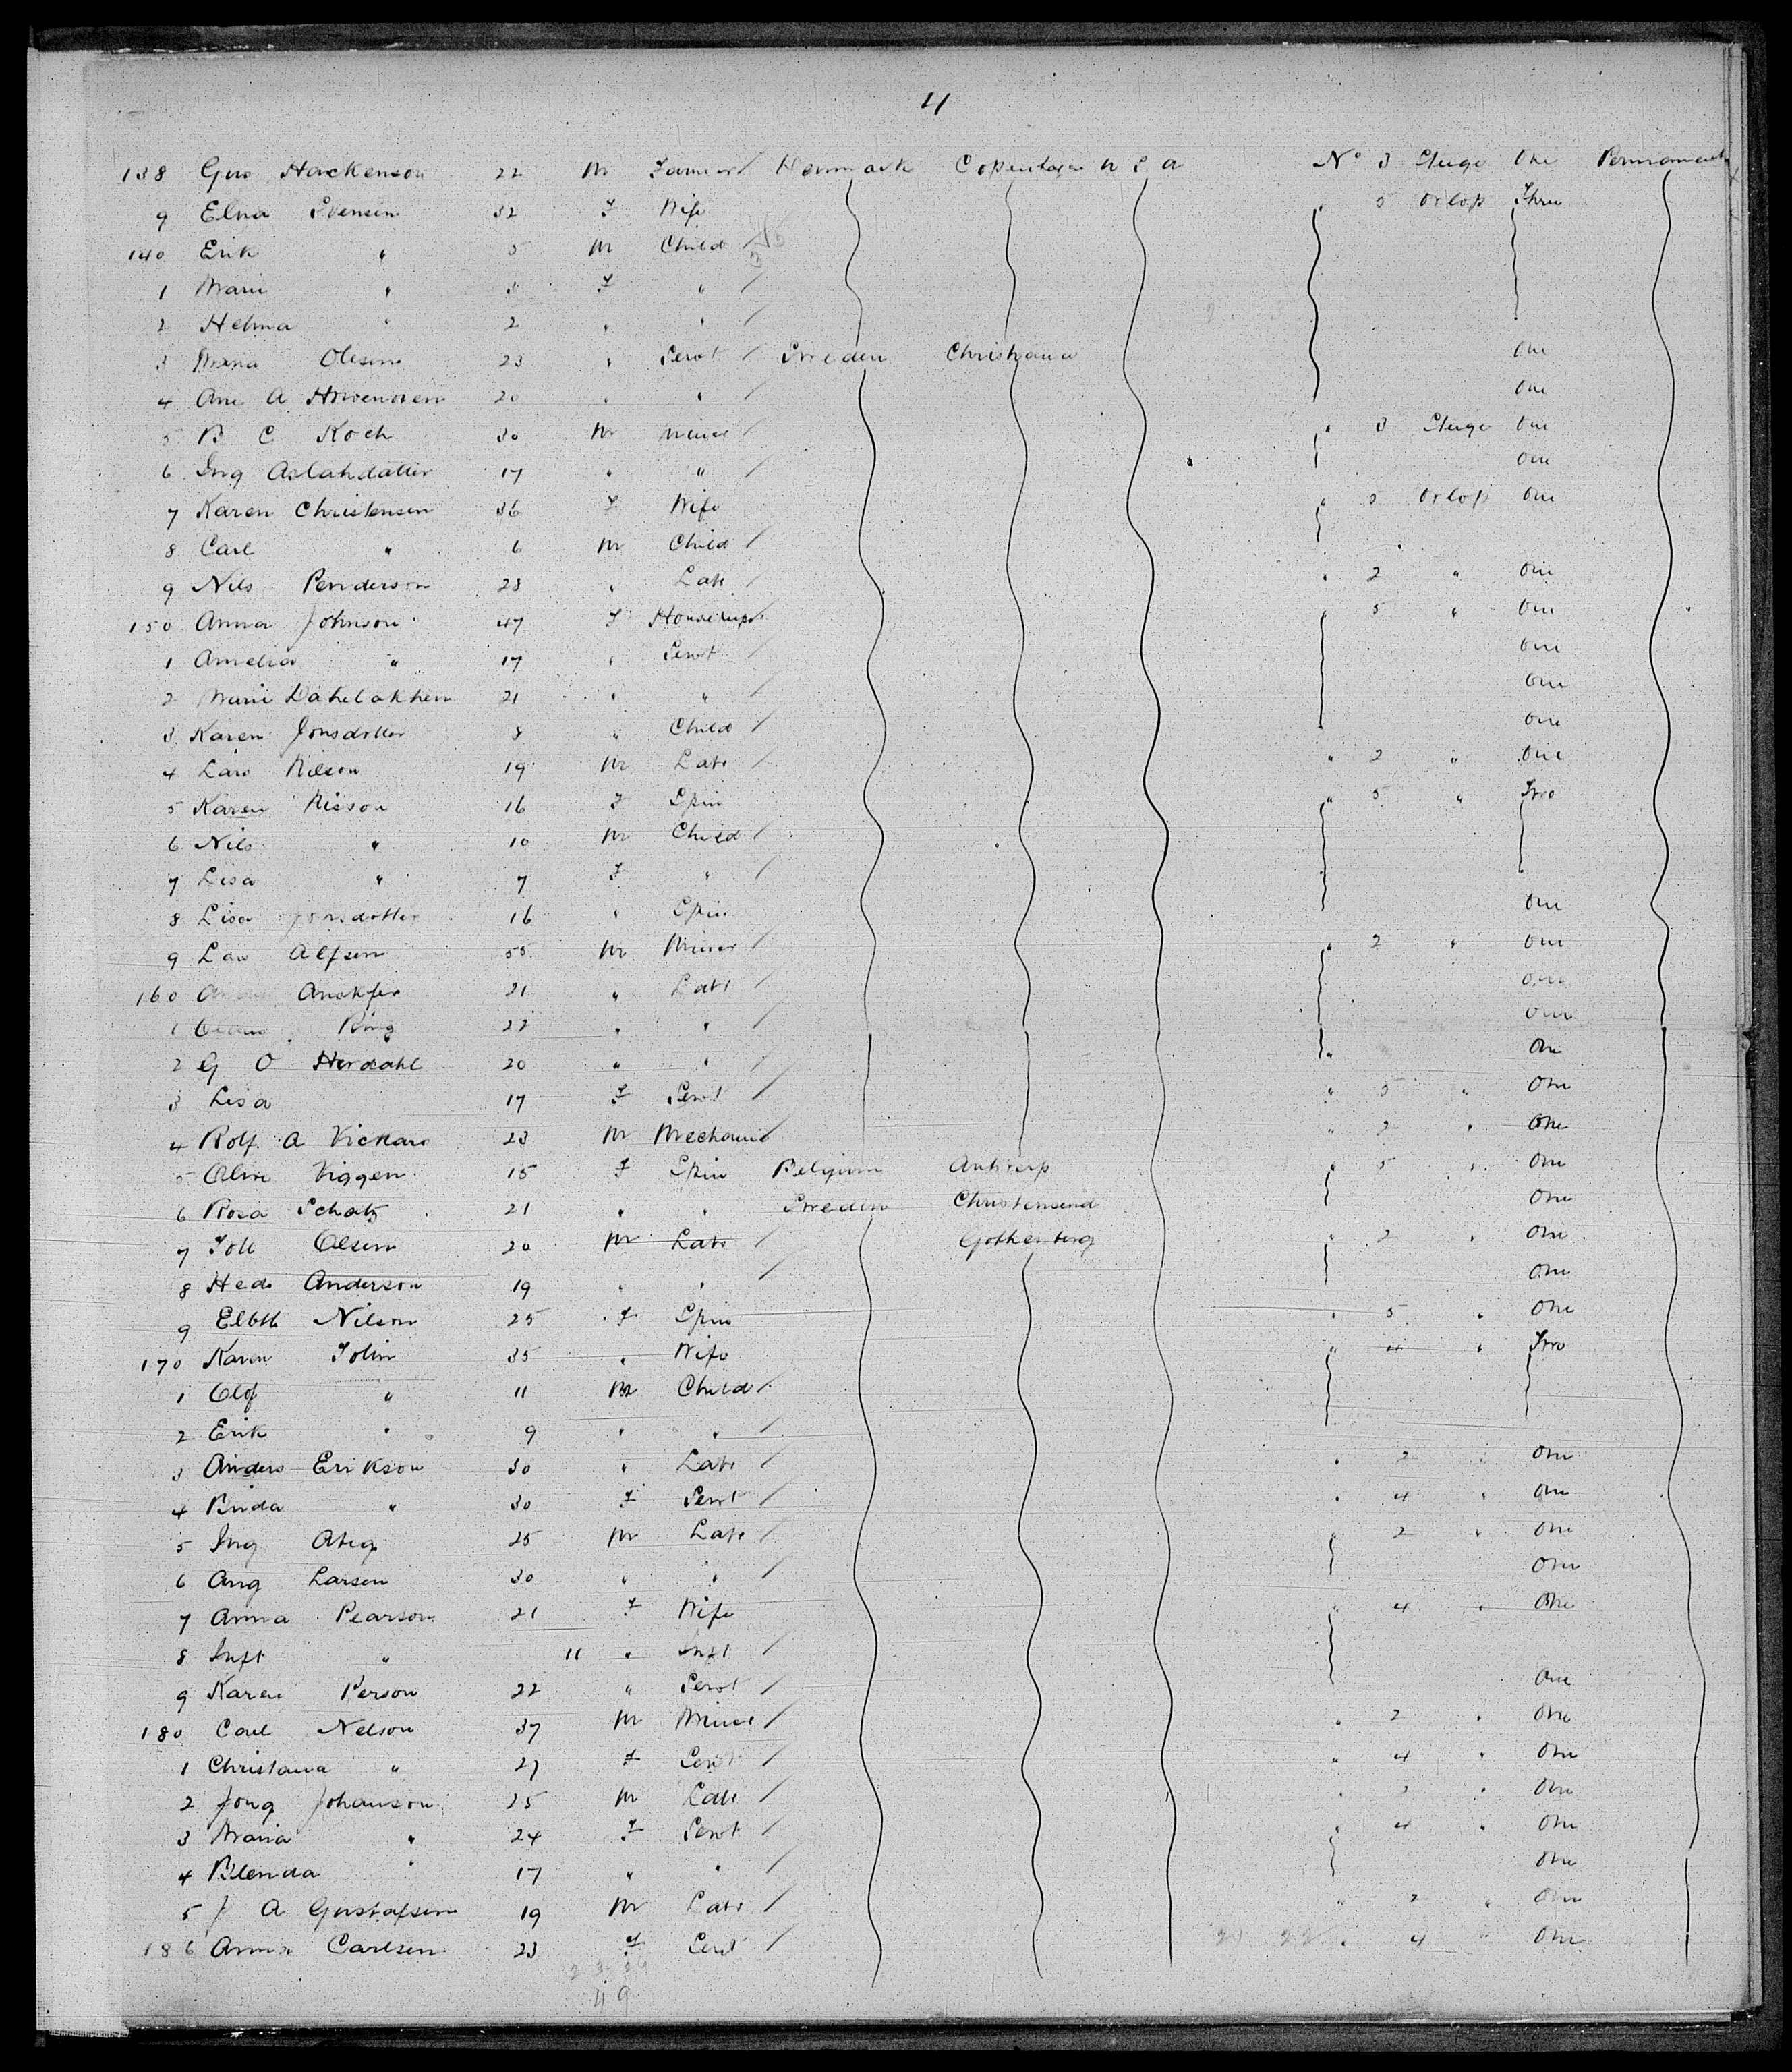 4
138 Gus Hackenson 22 M Farmer / Denmark Copenhagen U S A No 3 Stuge One Permanently
9 Elna Svensen 32 F Wife " 5 Orlop Three
140 Erik " 5 M Child /
1 Marie " 3 F " /
2 Helma " 2 " " /
3 Olesen 23 " Servt / Sweden Christiania One
4 Ane A 20 " " / One
5 B C Koch 30 M Miner / " 3 Stuge One
6 Ing Aslahdatter 17 " " / One
7 Karen Christensen 36 F Wife " 5 Orlop One
8 Carl " 6 M Child /
9 Nils Penderson 23 " Labr / " 2 " One
150 Anna Johnson 47 F Housekeepr " 5 " One
1 Amelia " 17 " Servt / One
2 Marie Dahelakhen 21 " " / One
3 Karen Jonsdotter 8 " Child / One
4 Lars Nilson 19 M Labr / " 2 " One
5 Karen Nisson 16 F Spin " 5 " Two
6 Nils " 10 M Child /
7 Lisa " 7 F " /
8 Lisa Jonsdotter 16 " Spin One
9 Lars Alfsen 55 M Miner / " 2 " One
160 Anskfer 21 " Labr / One
1 Ring 22 " " / One
2 G O Herdahl 20 " " / " One
3 Lisa 17 F Servt / " 5 " One
4 Rolf A Vickars 23 M Mechanic / " 2 " One
5 Oline Viggen 15 F Spin Belgium Antwerp " 5 " One
6 Rosa Schatz 21 " " Sweden Christensend One
7 Tolb Olsen 20 M Labr / Gothenberg " 2 " One
8 Heds Anderson 19 " " / One
9 Elbth Nilson 25 F Spin " 5 " One
170 Karen Tolin 35 " Wife " 4 " Two
1 Olof " 11 M Child /
2 Erik " 9 " " /
3 Anders Erikson 30 " Labr / " 2 " One
4 Brida " 30 F Servt / " 4 " One
5 Ing 25 M Labr / " 2 " One
6 Ang Larsen 30 " " / One
7 Anna Pearson 21 F Wife " 4 " One
8 Inft " 11 " Inft /
9 Karen Person 22 " Servt / One
180 Carl Nelson 37 M Miner / " 2 " One
1 Christana " 27 F Servt / " 4 " One
2 Jong Johanson 25 M Labr / " 2 " One
3 Maria " 24 F Servt / " 4 " One
4 Blenda " 17 " " / One
5 J A Gustafsen 19 M Labr / " 2 " One
186 Anna Carlsen 23 F Servt / " 4 " One
49